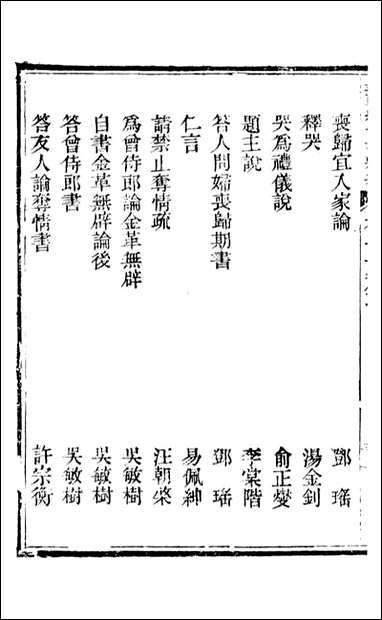 喪歸宜入家論 鄧瑤
釋哭 湯金釗
哭爲禮儀說 俞正燮
題主說 李棠階
答人問婦喪歸期書 鄧瑤
仁言 易佩紳
請禁止奪情疏 汪朝棨
爲曾侍郎論金革無辟 吳敏樹
自書金革無辟論後 吳敏樹
答曾侍郎書 吳敏樹
答友人論奪情書 許宗衡